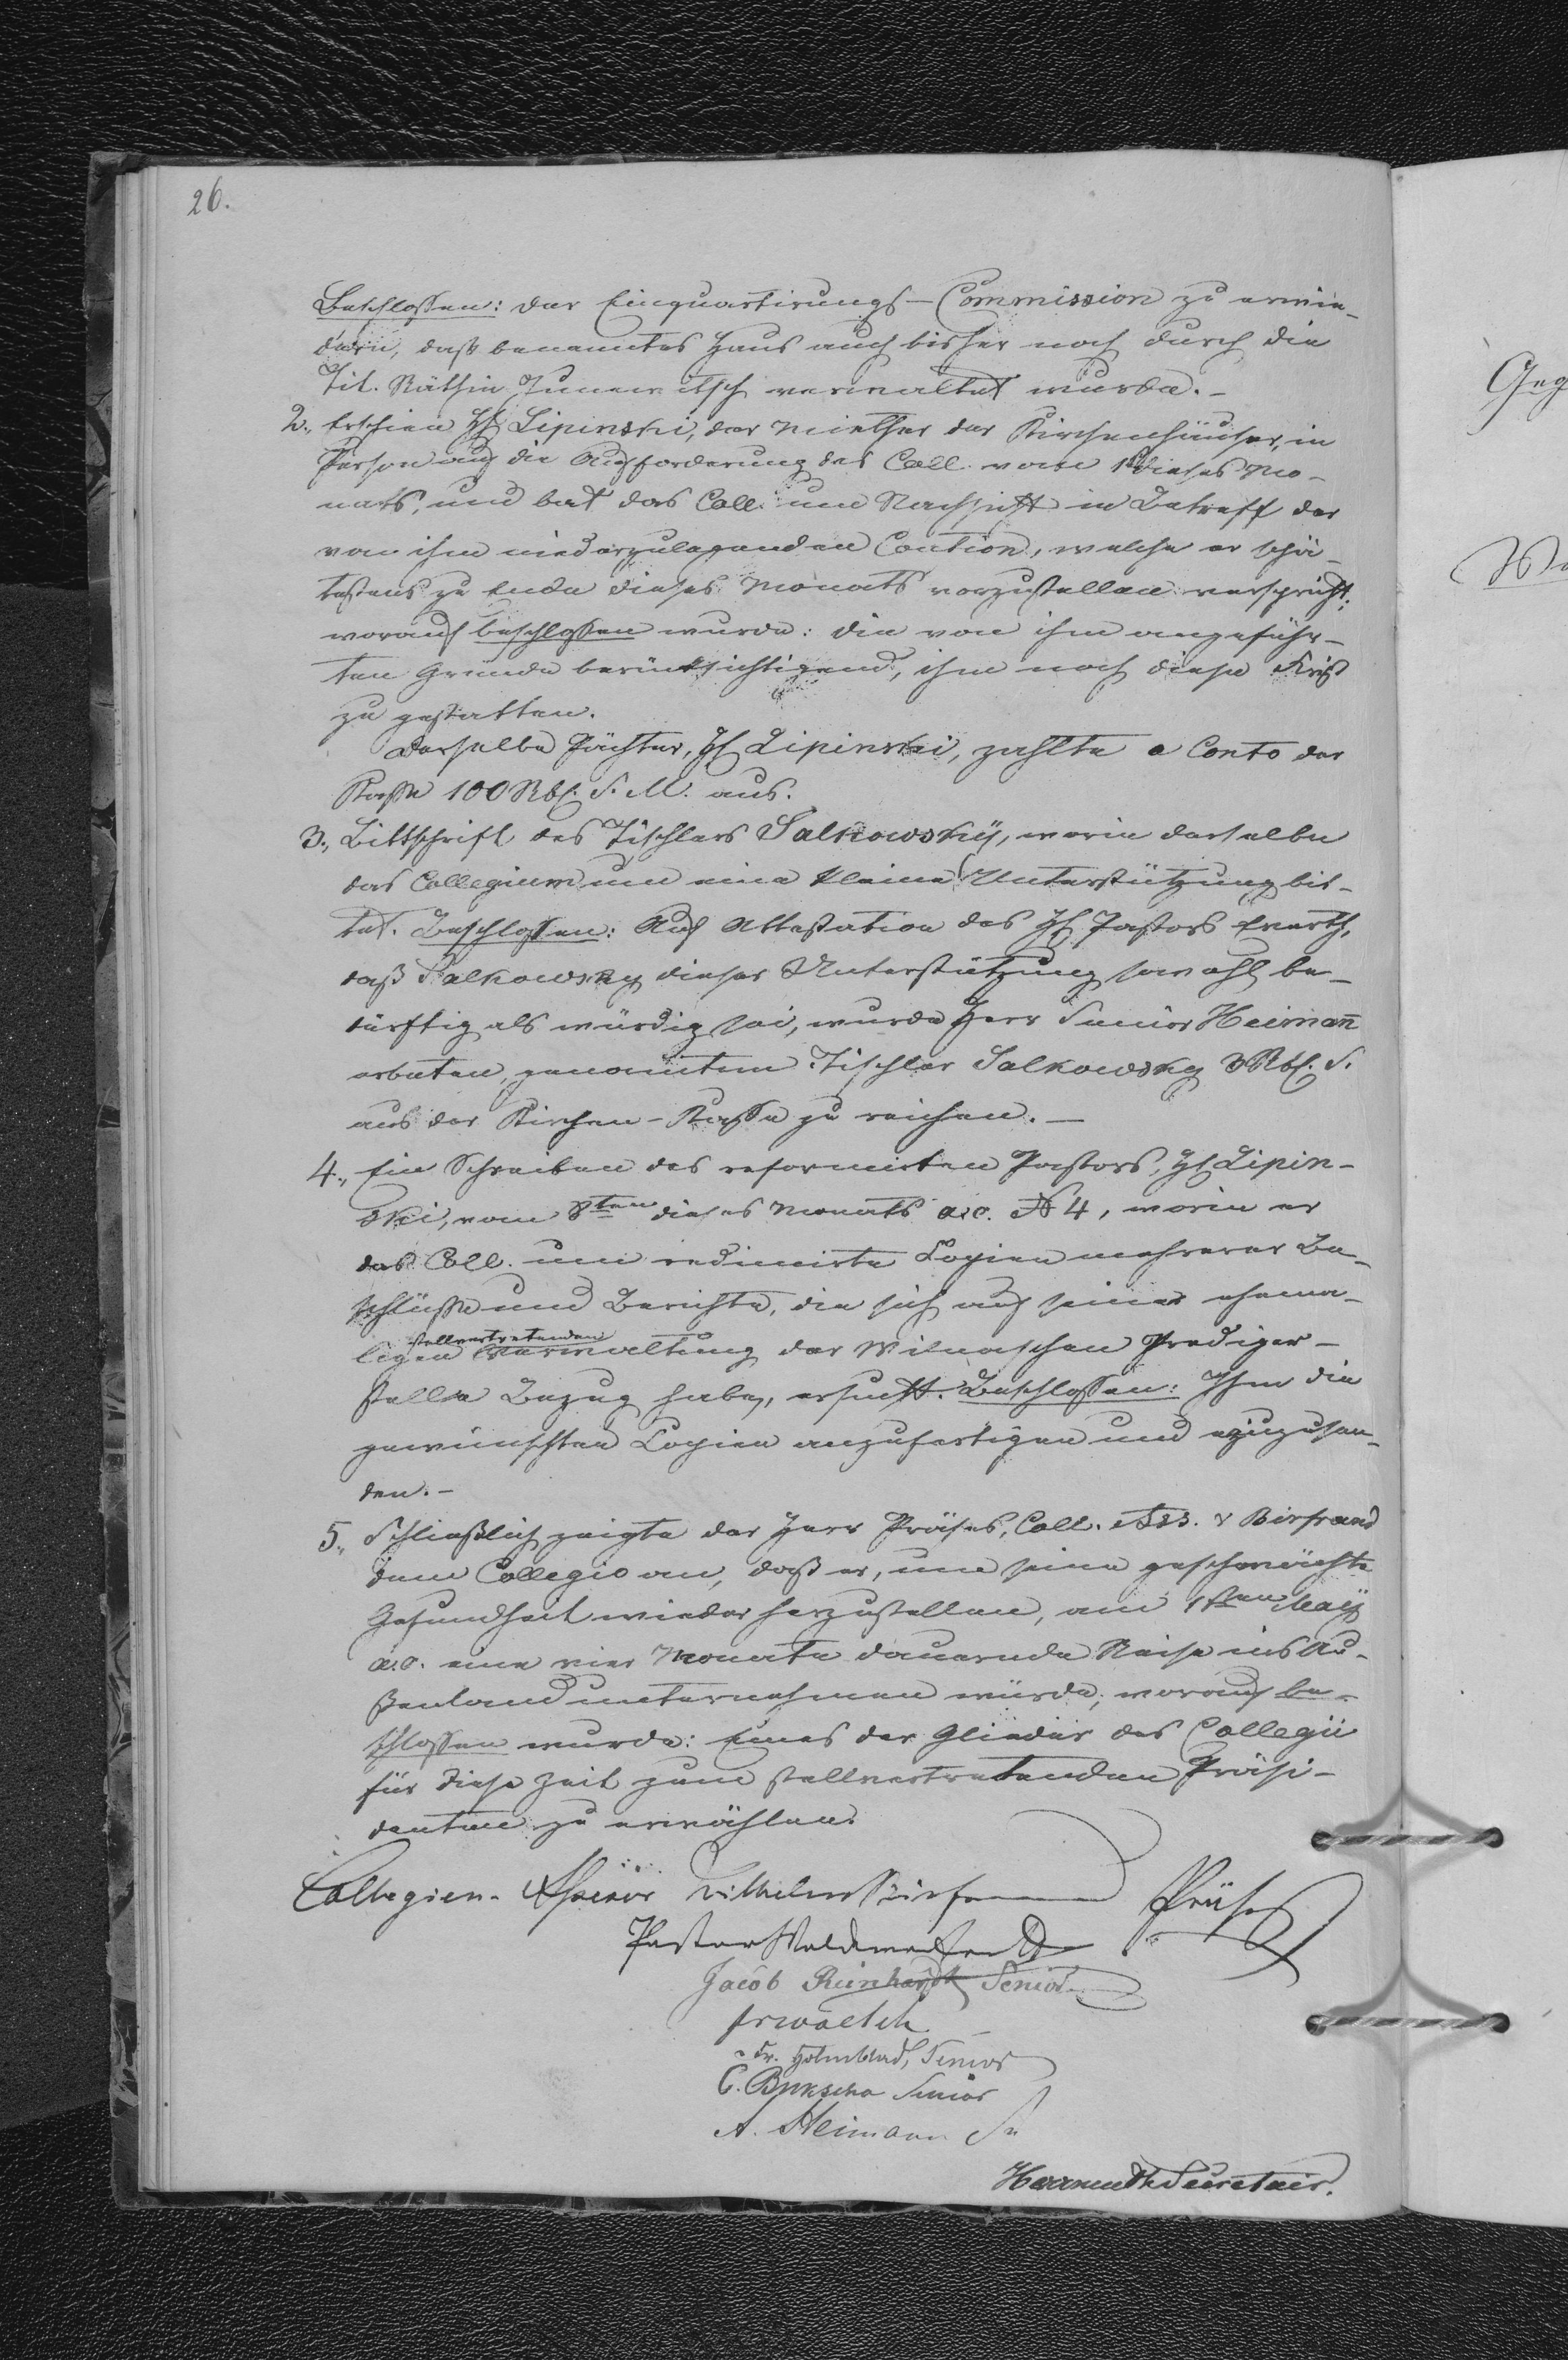 26.
Beschlossen: der Einquartirungs-Commission zu erwie-
dern, daß benanntes Haus auch bisher noch durch die
Tit. Räthin verwaltet wurde.-
2., Erschien H Lipinski, der Miether der Kirchenhäuser, in
Person auf die Aufforderung des Coll. vom 1 dieses Mo-
nats, und bat das Coll. um Nachsicht in Betreff der
von ihm niederzulegenden Caution, welche er spä-
testens zu Ende dieses Monats vorzustellen verspricht;
worauf beschlossen wurde: die von ihm angeführ-
ten Gründe berücksichtigend, ihm noch diese Frist
zu gestatten.
Derselbe Pächter, H Lipinski, zahlte a Conto der
Kasse 100 Rbl. S. M. aus.
3., Bittschrift des Tischlers Salkowskÿ, worin derselbe
das Collegium um eine kleine Unterstützung bit-
tet. Beschlossen: Auf Attestation des H Pastors Everth,
daß Salkowsky dieser Unterstützung sowohl be-
dürftig als würdig sei, wurde Herr Senior Heimañ
erbeten, genanntem Tischler Salkowsky 3 Rbl. S.
aus der Kirchen-Kasse zu reichen.-
4., Ein Schreiben des reformirten Pastors, H Lipin-
ski, vom 8ten dieses Monats a.c. № 4, worin er
das Coll. um vidimirte Copien mehrerer Be-
schlüsse und Berichte, die sich auf seine ehema-
stellvertretenden
ligen Verwaltung der Wilnaschen Prediger-
stelle Bezug haben, ersucht. Beschlossen: Ihm die
gewünschten Copien anzufertigen und zuzusen-
den.-
5., Schließlich zeigte der Herr Präses, Coll. Ass. v
dem Collegio an, daß er, um seine geschwächte
Gesundheit wieder herzustellen, am 1sten Maÿ
a.c. eine vier Monate dauernde Reise ins Au-
ßenland unternehmen würde; worauf be-
schlossen wurde: Eines der Glieder des Collegii
für diese Zeit zum stellvertretenden Präsi-
denten zu erwählen.
Collegien-Assessor Wilhelm Präses
Pastor
Jacob Reinhardt Senior
Fr. Holmblad, Senior
C. Senior
A. Heimann Sr
Secretair.